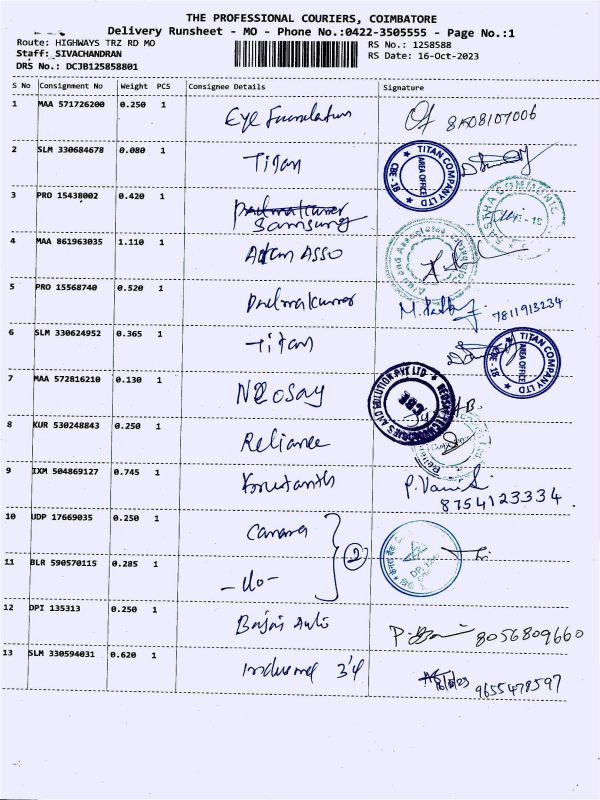 THE PROFESSIONAL COURIERS, COIMBATORE
Delivery Runsheet - MO - Phone No.:0422-3505555 - Page No.:1
Route: HIGHWAYS TRZ RD MO
RS No.: 1258588
Staff: SIVACHANDRAN
RS Date: 16-Oct-2023
DRS No.: DCJB125858801
S No Consignment No Weight PCS Consignee Details Signature
1 MAA 571726200 0.250 1 Eye Foundation
2 SLM 330684678 0.080 1 Titan
TITAN COMPANY LTD
AREA OFFICE
CBE-18
3 PRO 15438002 0.420 1 Samsung
4 MAA 861963035 1.110 1 Asso
5 PRO 15568740 0.520 1 7811913234
6 SLM 330624952 0.365 1 Titan
TITAN COMPANY LTD
AREA OFFICE
CBE-18
7 MAA 572816210 0.130 1
CBE
8 KUR 530248843 0.250 1 Reliance
9 IXM 504869127 0.745 1 8754123334
10 UDP 17669035 0.250 1 Canara
2
11 BLR 590570115 0.285 1 -do-
12 DPI 135313 0.250 1 Bajaj Auto 8056809660
13 SLM 330594031 0.620 1 9655478597